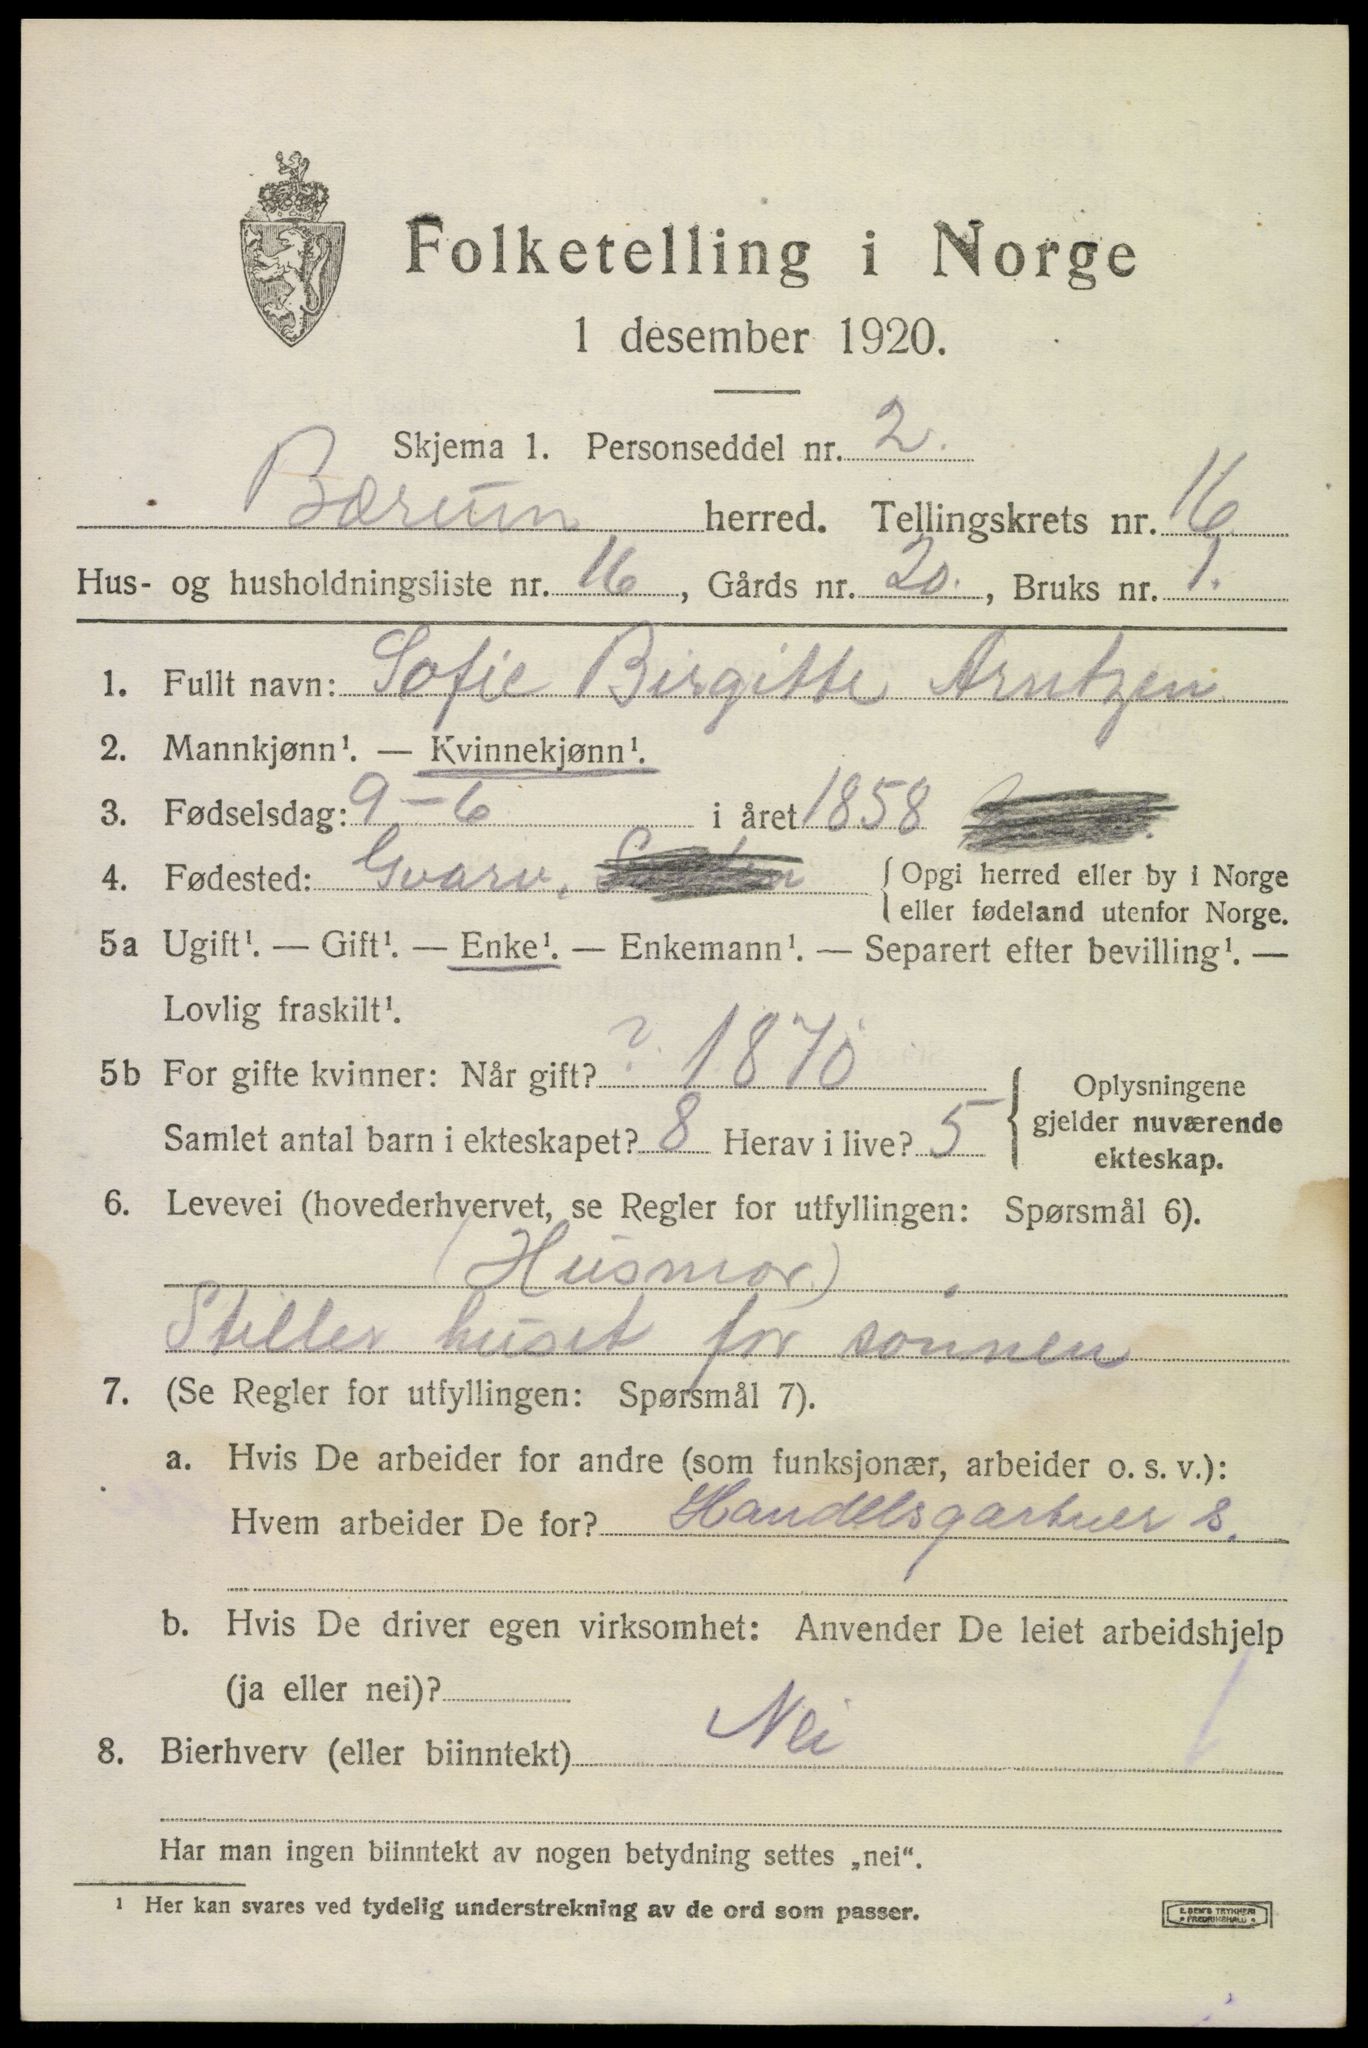 Folketelling i Norge
1 desember 1920.
Skjema 1. Personseddel nr. 2.
Bærum herred. Tellingskrets nr. 16
Hus- og husholdningsliste nr. 16, Gårds nr. 20., Bruks nr. 1.
1. Fullt navn: Sofie Birgitte Arntzen
2. Mannkjønn¹. — Kvinnekjønn¹.
3. Fødselsdag: 9-6 i året 1858
4. Fødested: Gvarv, { Opgi herred eller by i Norge
eller fødeland utenfor Norge.
5a Ugift¹. — Gift¹. — Enke¹. — Enkemann¹. — Separert efter bevilling¹. —
Lovlig fraskilt¹.
5b For gifte kvinner: Når gift? ? 1870
Samlet antal barn i ekteskapet? 8 Herav i live? 5
{ Oplysningene
gjelder nuværende
ekteskap.
6. Levevei (hovederhvervet, se Regler for utfyllingen: Spørsmål 6).
(Husmor)
Steller huset for sønnen
7. (Se Regler for utfyllingen: Spørsmål 7).
a. Hvis De arbeider for andre (som funksjonær, arbeider o. s. v.):
Hvem arbeider De for? Handelsgartner s.
b. Hvis De driver egen virksomhet: Anvender De leiet arbeidshjelp
(ja eller nei)?
8. Bierhverv (eller biinntekt) Nei
Har man ingen biinntekt av nogen betydning settes „nei“.
¹ Her kan svares ved tydelig understrekning av de ord som passer.
TRYKKERI
FREDRIKSHALD